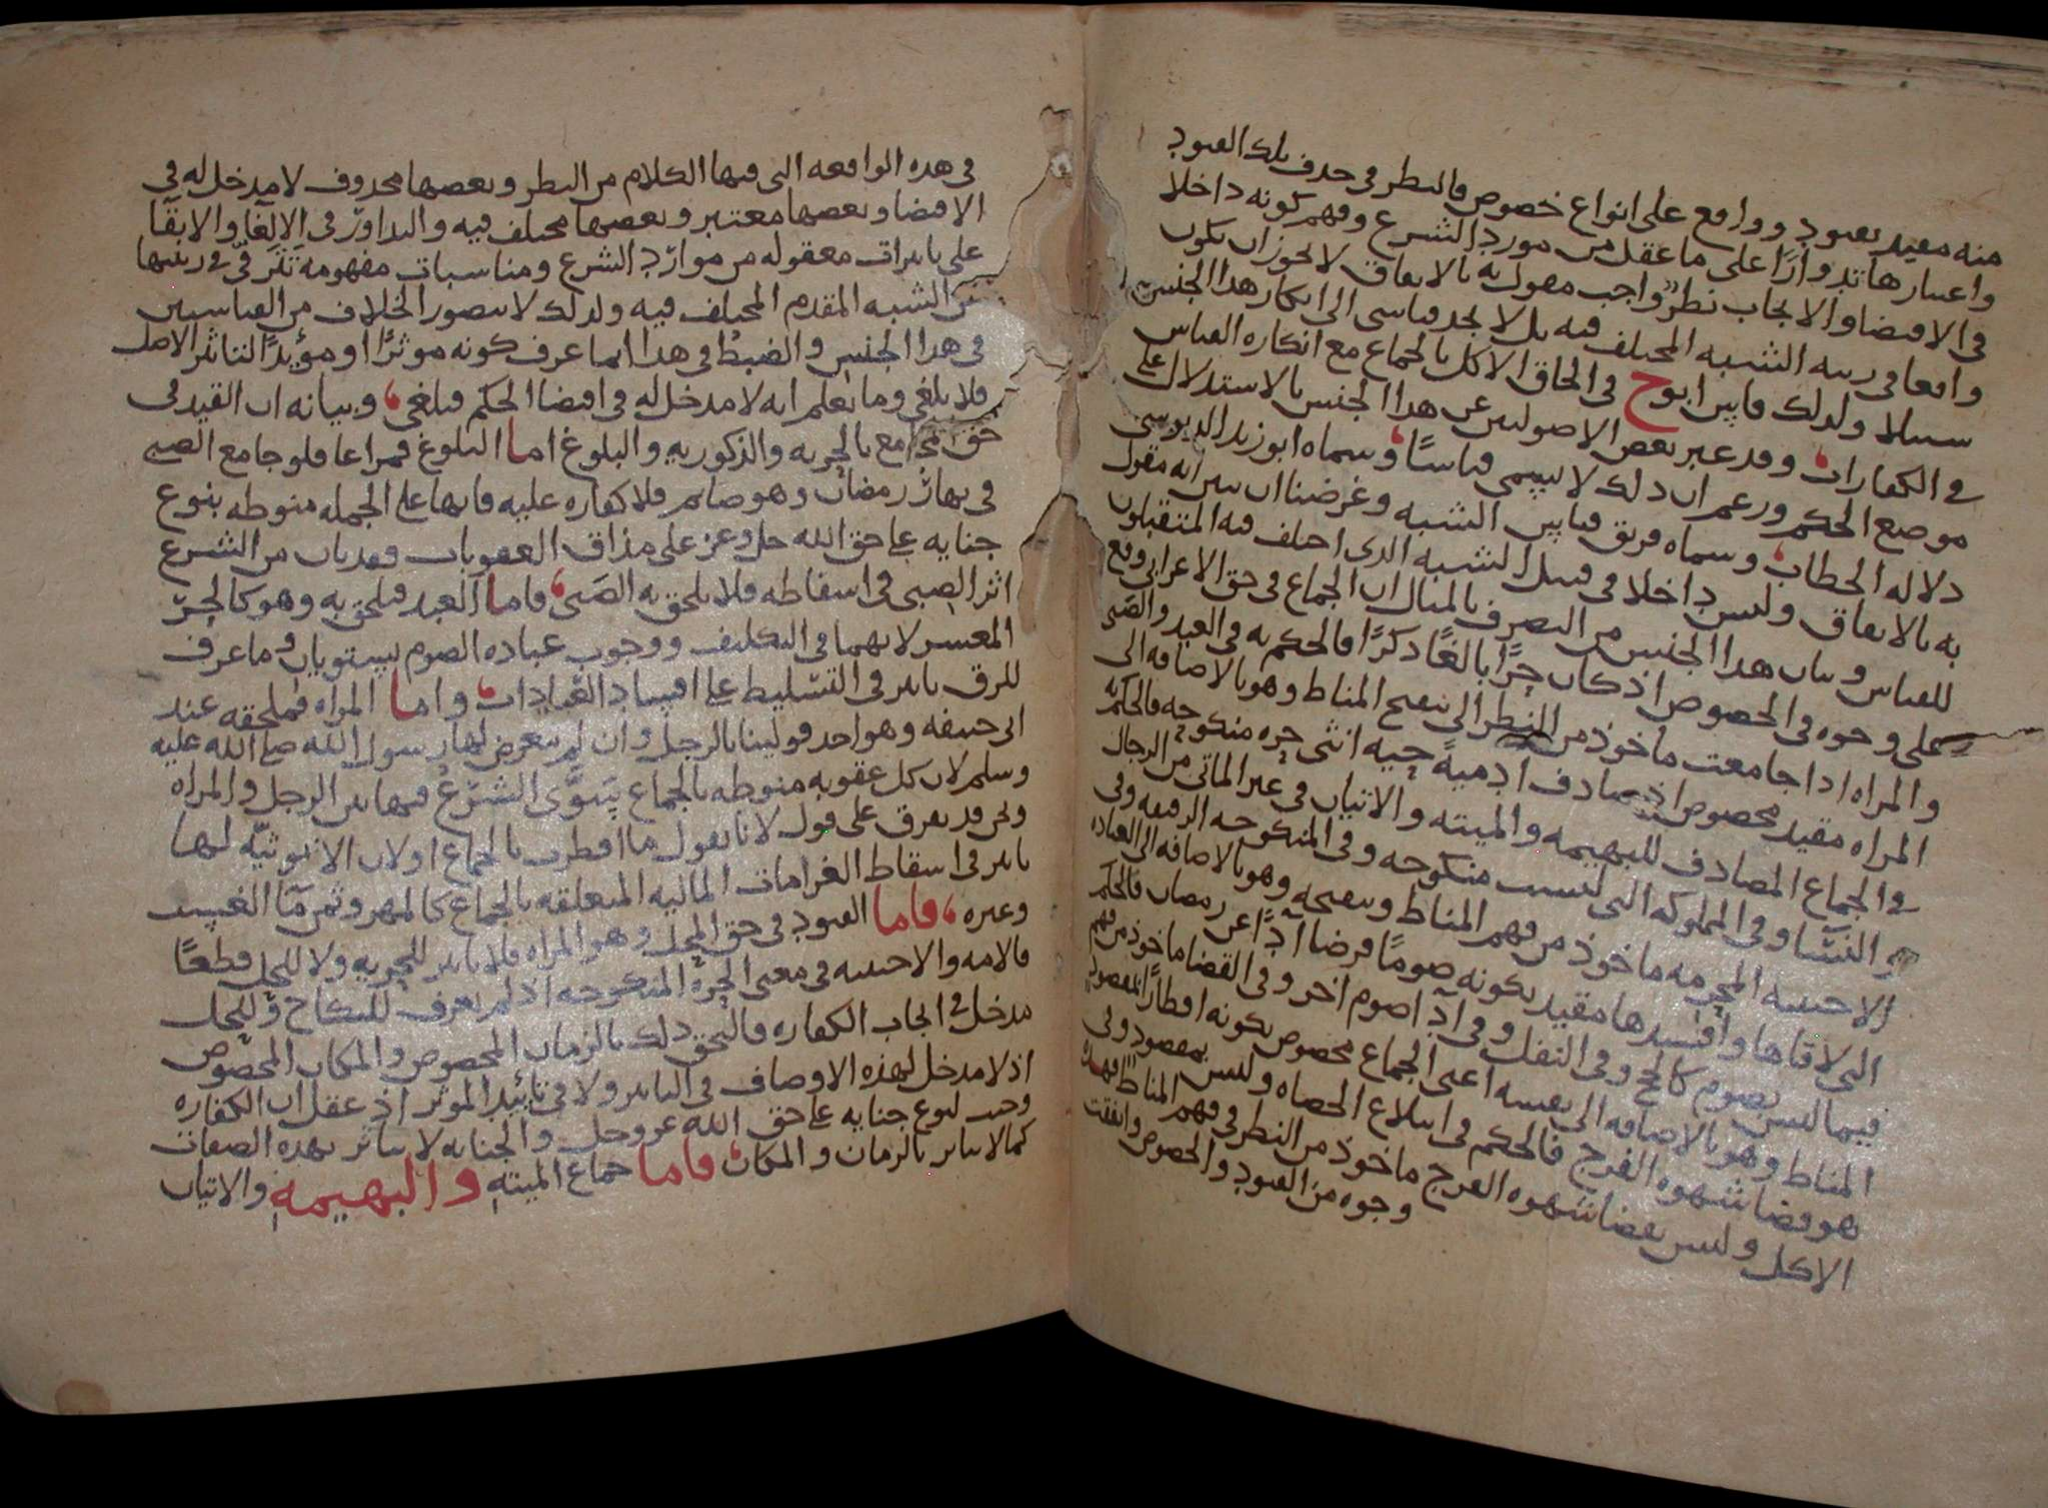 منه مقيد بقيود وواقع على انواع خصوص فالنظر في حذف تلك القيود
واعتبارها تدوارًا على ما عقل من مورد الشرع وفهم كونه داخلا
في الاقتضا والايجاب نظر واجب مقول به بالاتفاق لا يجوز ان يكون
واقعا في رتبه الشبه المختلف فيه بل لا يجد قياسي الى انكار هذا الجنس
سبيلا ولذلك قايس ابوح في الحاق الاكل بالجماع مع انكاره القياس
في الكفارات وقد عبر بعض الاصوليين عن هذا الجنس بالاستدلال على
موضع الحكم وزعم ان ذلك لا يسمى قياسًا وسماه ابو زيد الدبوسي
دلاله الخطاب وسماه فريق قياس الشبه وغرضنا ان نبين انه مقول
به بالاتفاق وليس داخلا في قبيل الشبه الذي اختلف فيه المتقبلون
للقياس وبيان هذا الجنس من التصرف بالمثال ان الجماع في حق الاعرابي وقع
على وجوه في الخصوص اذ كان حرًا بالغًا ذكرًا فالحكم به في العبد والصبي
والمراه اذا جامعت ماخوذ من النظر الى تنقيح المناط وهو بالاضافه الى
المراه مقيد مخصوص اذ صادف ادميةً حيه انثى حره منكوحه فالحكم به
في الجماع المصادف للبهيمه والميته والاتيان في غير الماتى من الرجال
والنسا وفي المملوكه التي ليست منكوحه وفي المنكوحه الرقيقه وفي
الاجنبيه المحرمه ماخوذ من فهم المناط وتنقيحه وهو بالاضافه الى العباده
التي لاقاها وافسدها مقيد بكونه صومًا فرضا اداً عن رمضان فالحكم
فيما ليس بصوم كالحج وفي النفل وفي ادا صوم اخر وفي القضا ماخوذ من فهم
المناط وهو بالاضافه الى نفسه اعنى الجماع مخصوص بكونه افطارًا بمقصود
هو قضا شهوه الفرج فالحكم في ابتلاع الحصاه وليس بمقصود وفي
الاكل وليس بقضا شهوه الفرج ماخوذ من النظر في فهم المناط فهذه
وجوه من القيود والخصوص واتفقت
في هذه الواقعه التي فيها الكلام من النظر وبعضها محذوف لا مدخل له في
الاقتضا وبعضها معتبر وبعضها مختلف فيه والتداور في الالغا والابقا
على تاثيرات معقوله من موارد الشرع ومناسبات مفهومه تترقى في رتبها
عن الشبه المقدم المختلف فيه ولذلك لا يتصور الخلاف من القياسيين
في هذا الجنس والضبط في هذا انما عرف كونه موثرًا او مؤيدًا لتاثير الاصل
فلا يلغى وما يعلم انه لا مدخل له في اقتضا الحكم فيلغى وبيانه ان القيد في
حق المجامع بالحريه والذكوريه والبلوغ اما البلوغ فمراعا فلو جامع الصبي
في نهار رمضان وهو صايم فلا كفاره عليه فانها على الجمله منوطه بنوع
جنايه على حق الله جل وعز على مذاق العقوبات وقد بان من الشرع
اثر الصبى في اسقاطه فلا يلحق به الصبى فاما العبد فيلحق به وهو كالحر
المعسر لانهما في التكليف ووجوب عباده الصوم يستويان وما عرف
للرق تاثير في التسليط على افساد العبادات واما المراه فملحقه عند
ابى حنيفه وهو احد قولينا بالرجل وان لم يتعرض لها رسول الله صلى الله عليه
وسلم لان كل عقوبه منوطه بالجماع يسوّى الشرع فيها بين الرجل والمراه
ونحن قد نفرق على قول لانا نقول ما افطرت بالجماع او لان الانوثيّه لها
تاثير في اسقاط الغرامات الماليه المتعلقه بالجماع كالمهر وثمن ما الغسل
وغيره فاما القيود في حق المحل وهو المراه فلا تاثير للحريه ولا للحل قطعًا
فالامه والاجنبيه في معنى الحره المنكوحه اذ لم يعرف للنكاح وللحل
مدخل في ايجاب الكفاره فالتحق ذلك بالزمان المخصوص والمكان المخصوص
اذ لا مدخل لهذه الاوصاف في التاثير ولا في تاييد الموثر اذ عقل ان الكفاره
وجبت لنوع جنايه على حق الله عز وجل والجنايه لا تتاثر بهذه الصفات
كما لا تتاثر بالزمان والمكان فاما جماع الميتهِ والبهيمهِ والاتيان